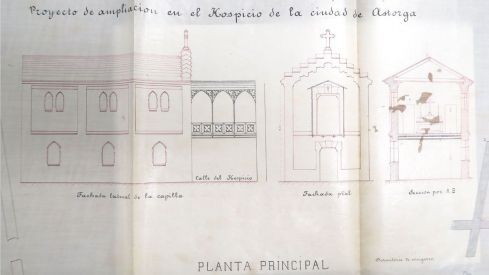 Proyecto de ampliación en el Hospicio de la ciudad de Astorga
Calle del Hospicio
Fachada lateral de la capilla
Fachada pral
Sección por A B
PLANTA PRINCIPAL
Dormitorio de